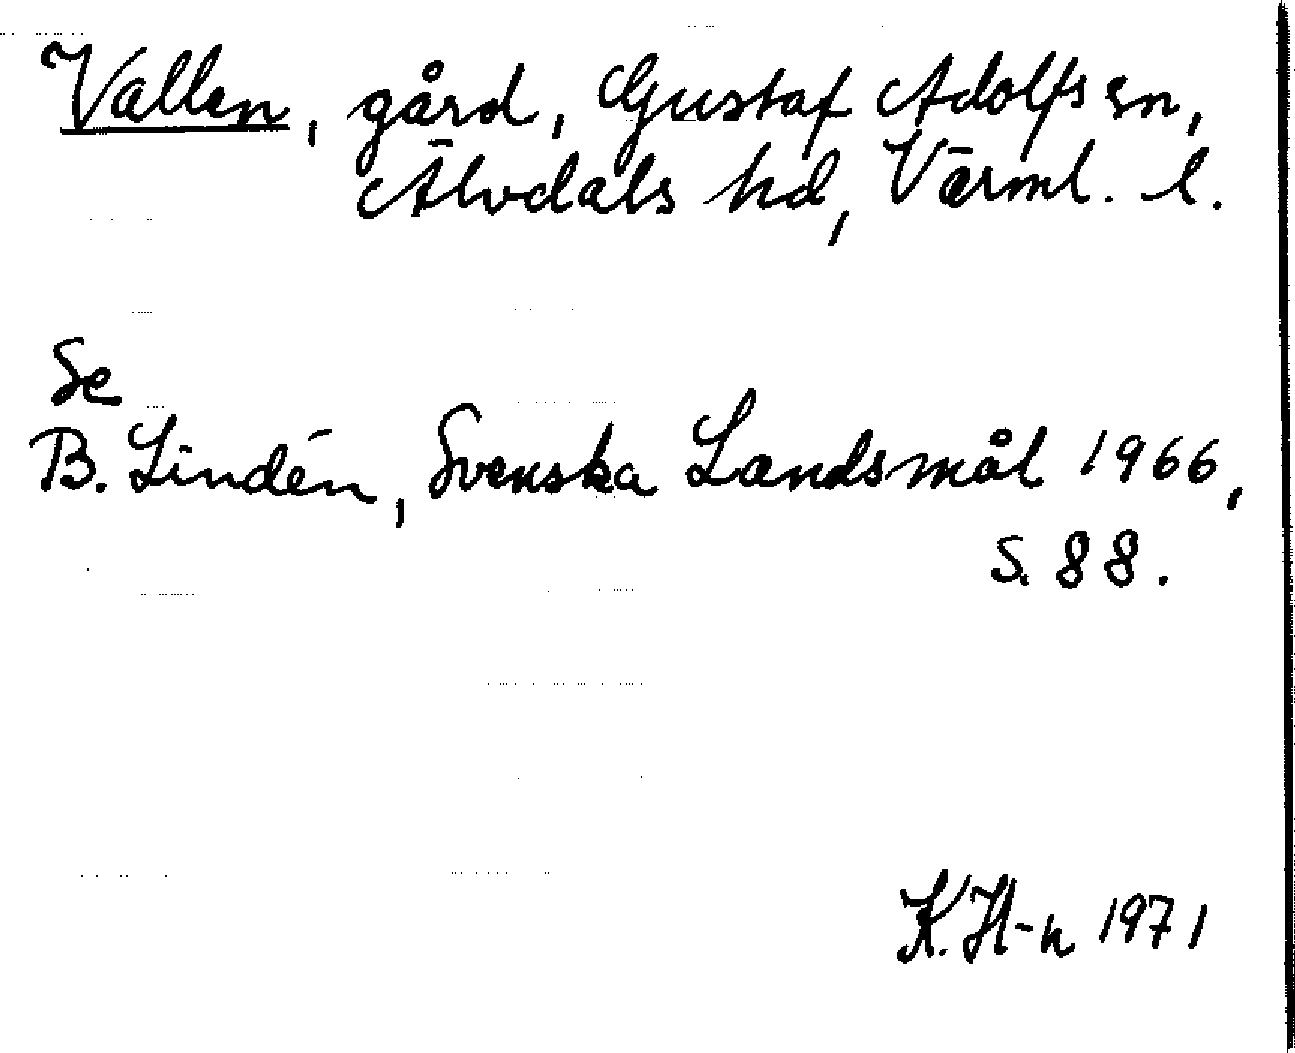 Vallen, gård, Gustaf Adolfs sn,
Älvdals hd, Värml. l.
Se
B. Lindén, Svenska Landsmål 1966,
s. 88.
K. H-n 1971